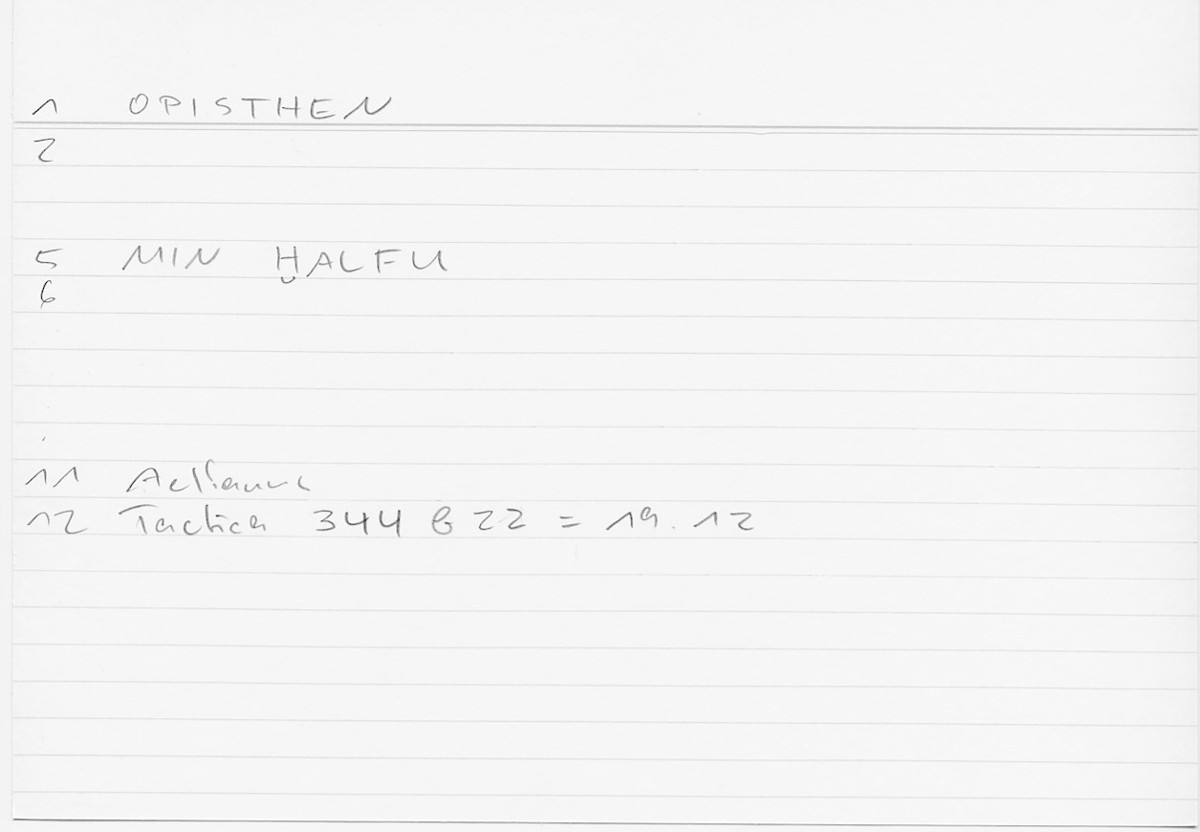 1 OPISTHEN
2
5 MIN ḪALFU
6
11 Aelianus
12 Tactica 344 b 22 = 19.12